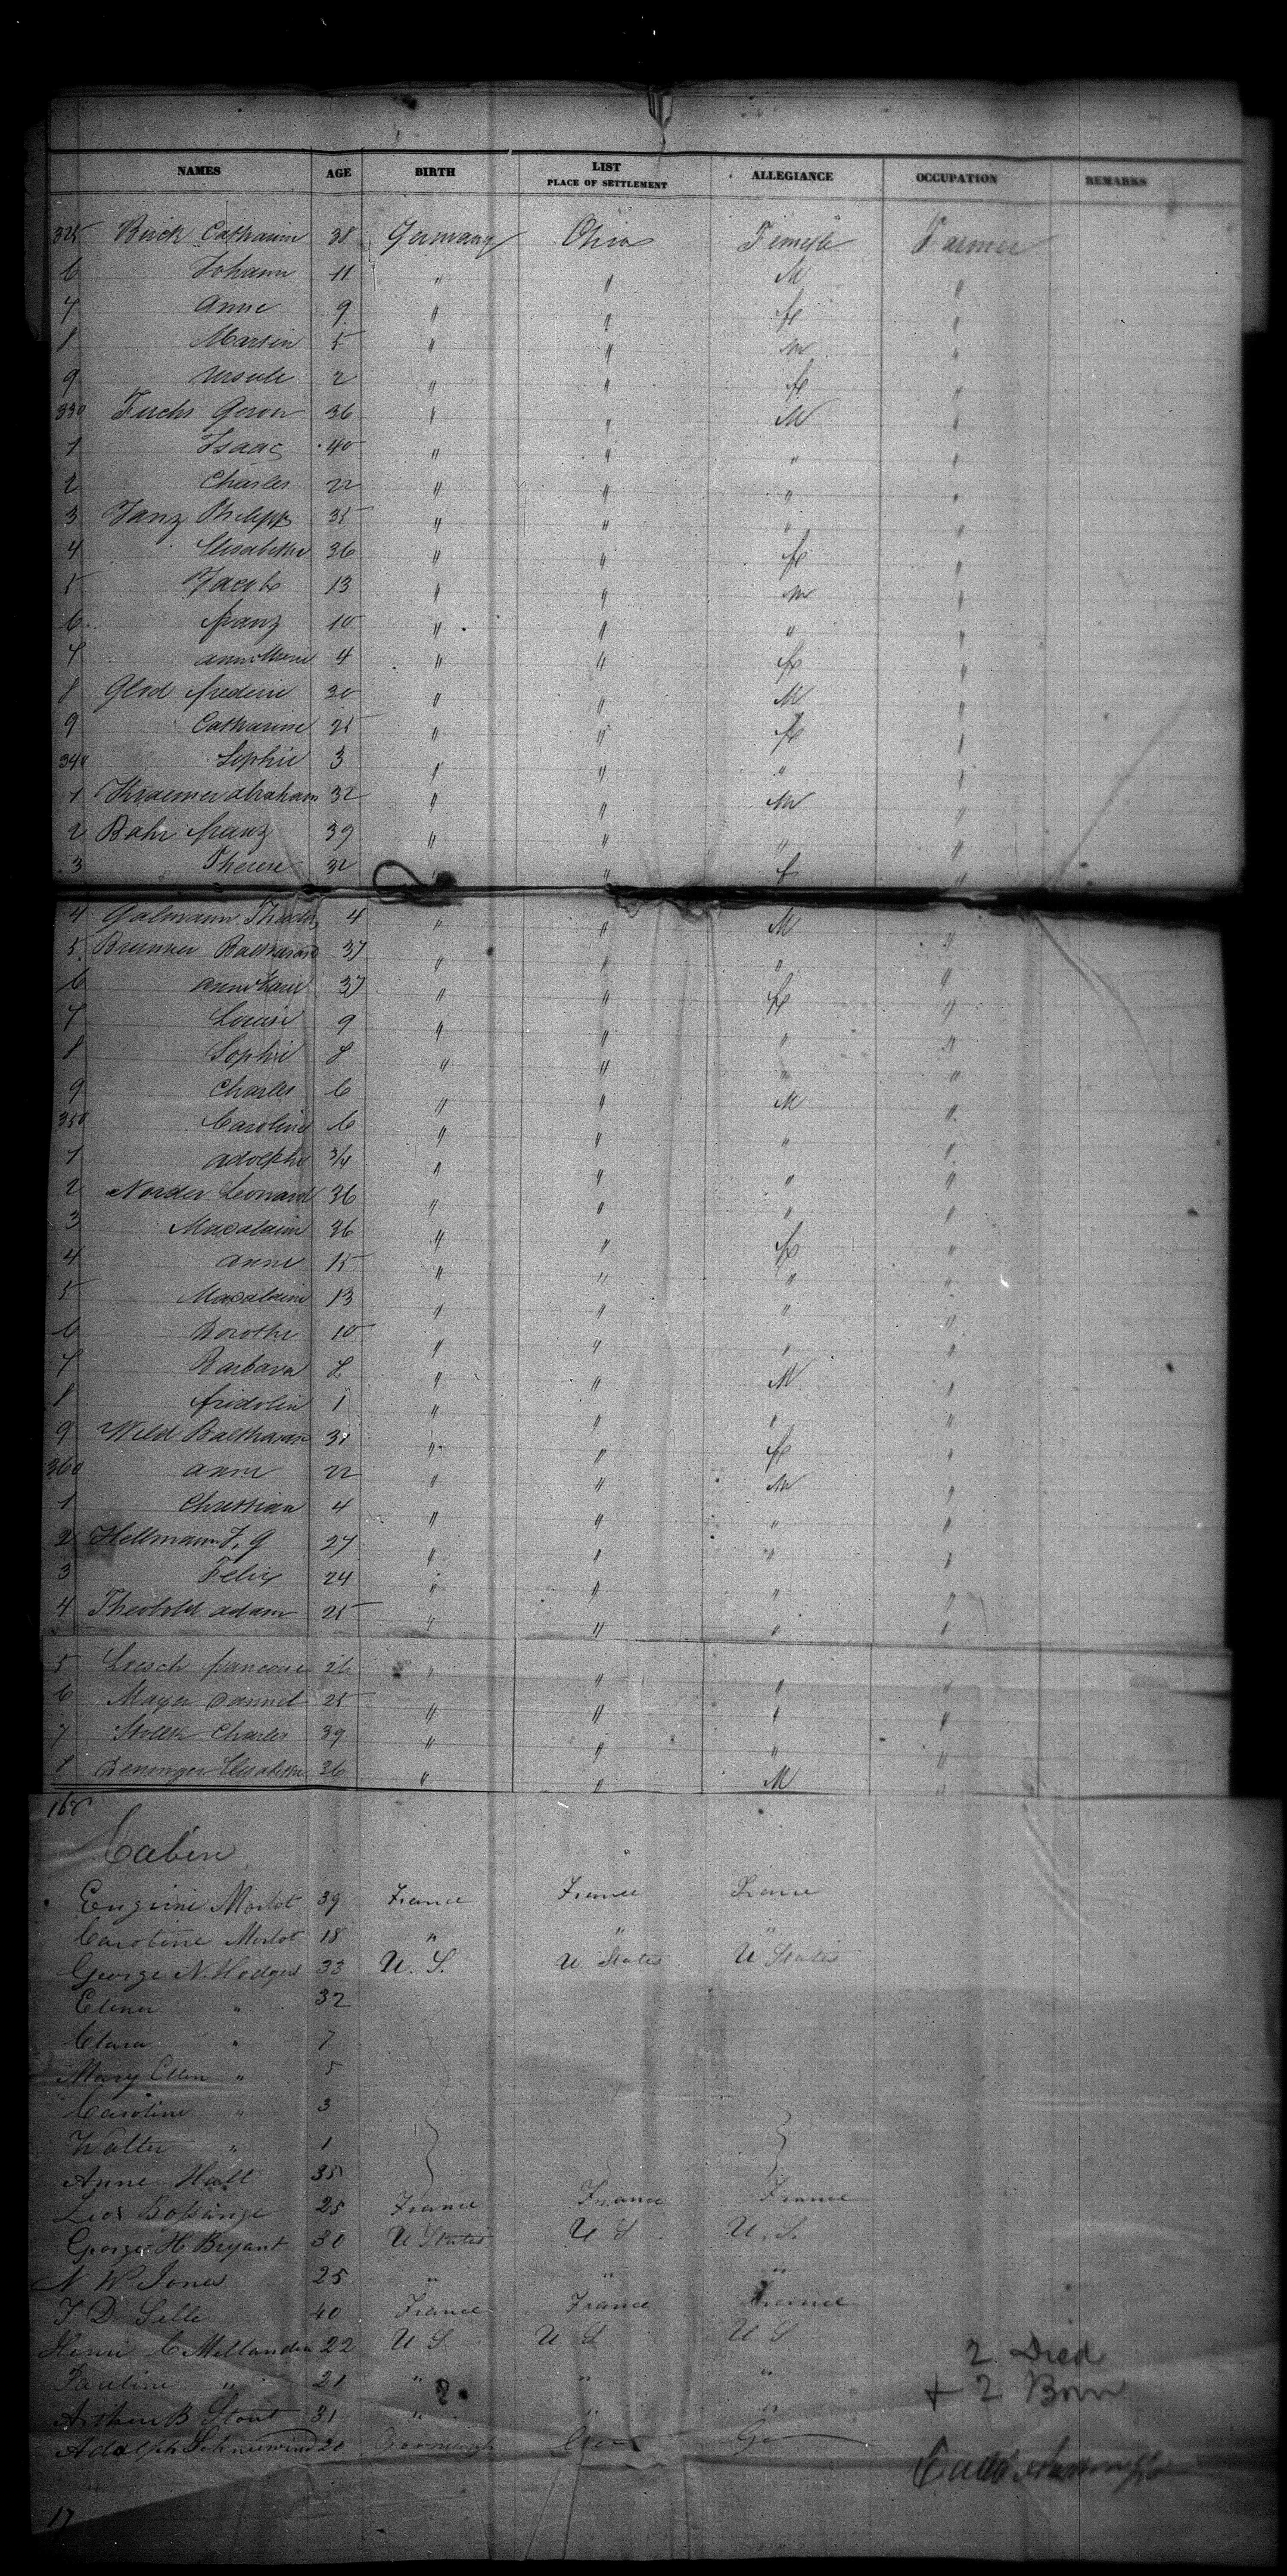 NAMES AGE BIRTH LIST PLACE OF SETTLEMENT ALLEGIANCE OCCUPATION REMARKS
325 Birck Catharine 38 Germany Ohio Female Farmer
6 Johann 11 " " M "
7 Anne 9 " " f "
8 Martin 5 " " m "
9 Ursule 2 " " f "
330 Fuchs 36 " " M "
1 Isaac 40 " " " "
2 Charles 22 " " " "
3 Janz Philipp 35 " " " "
4 Elisabethe 36 " " f "
5 Jacob 13 " " m "
6 franz 10 " " " "
7 anne Marie 4 " " f "
8 frederic 30 " " M "
9 Catharine 25 " " f "
340 Sophie 3 " " " "
1 Kraemer abraham 32 " " M "
2 Bahr franz 39 " " " "
3 Therese 32 " " f "
4 Galmann 4 " " M "
5 Brunner Balthasard 37 " " " "
6 anne Marie 37 " " f "
7 Louise 9 " " " "
8 Sophie 8 " " " "
9 Charles 6 " " M "
350 Caroline 6 " " " "
1 adolphe 3/4 " " " "
2 Norder Leonard 36 " " " "
3 Madalaine 36 " " f "
4 anne 15 " " " "
5 Madalaine 13 " " " "
6 Dorothe 10 " " " "
7 Barbara 8 " " M "
8 fridolin 1 " " " "
9 Wild Balthasar 31 " " f "
360 anne 22 " " M "
1 Christian 4 " " " "
2 Hellmann F. G 27 " " " "
3 Felix 24 " " " "
4 Theobold adam 25 " " " "
5 Loesch 26 " " " "
6 Mayer Daniel 25 " " " "
7 Charles 39 " " " "
8 Deninger Elisabethe 36 " " M "
168
Cabin
Eugenie Morlot 39 France France France
Caroline Morlot 18 " " "
George N. Hodges 33 U. S. U States U States
Elenir " 32
Clara " 7
Mary Ellen " 5
Caroline " 3
Walter " 1
Anne Hall 35
Leon Bossange 25 France France France
George H Bryant 30 U States U S U. S.
N W Jones 25 " " "
F D Lelle 40 France France France
Henri C Millandon 22 U S U S U S
Pauline " 21 " " "
2 Died
+ 2 Born
Arthur B Stout 31 " " "
Adolph Schniewind 20 Germany Ger Ge
17